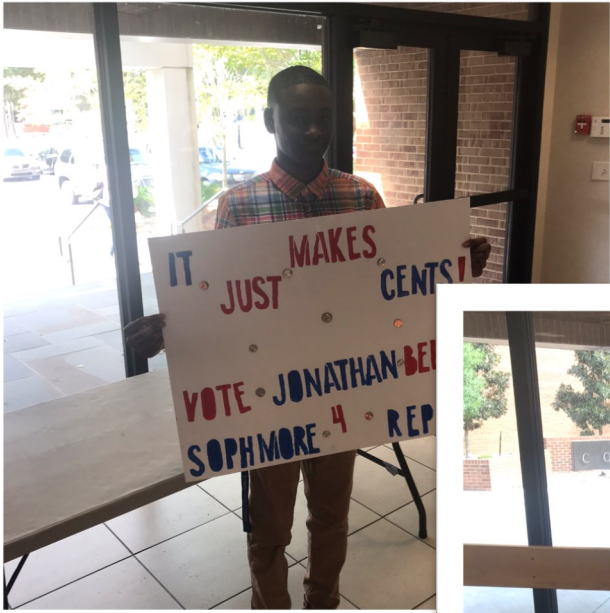 IT JUST MAKES CENTS!
VOTE JONATHAN
SOPHMORE 4 REP